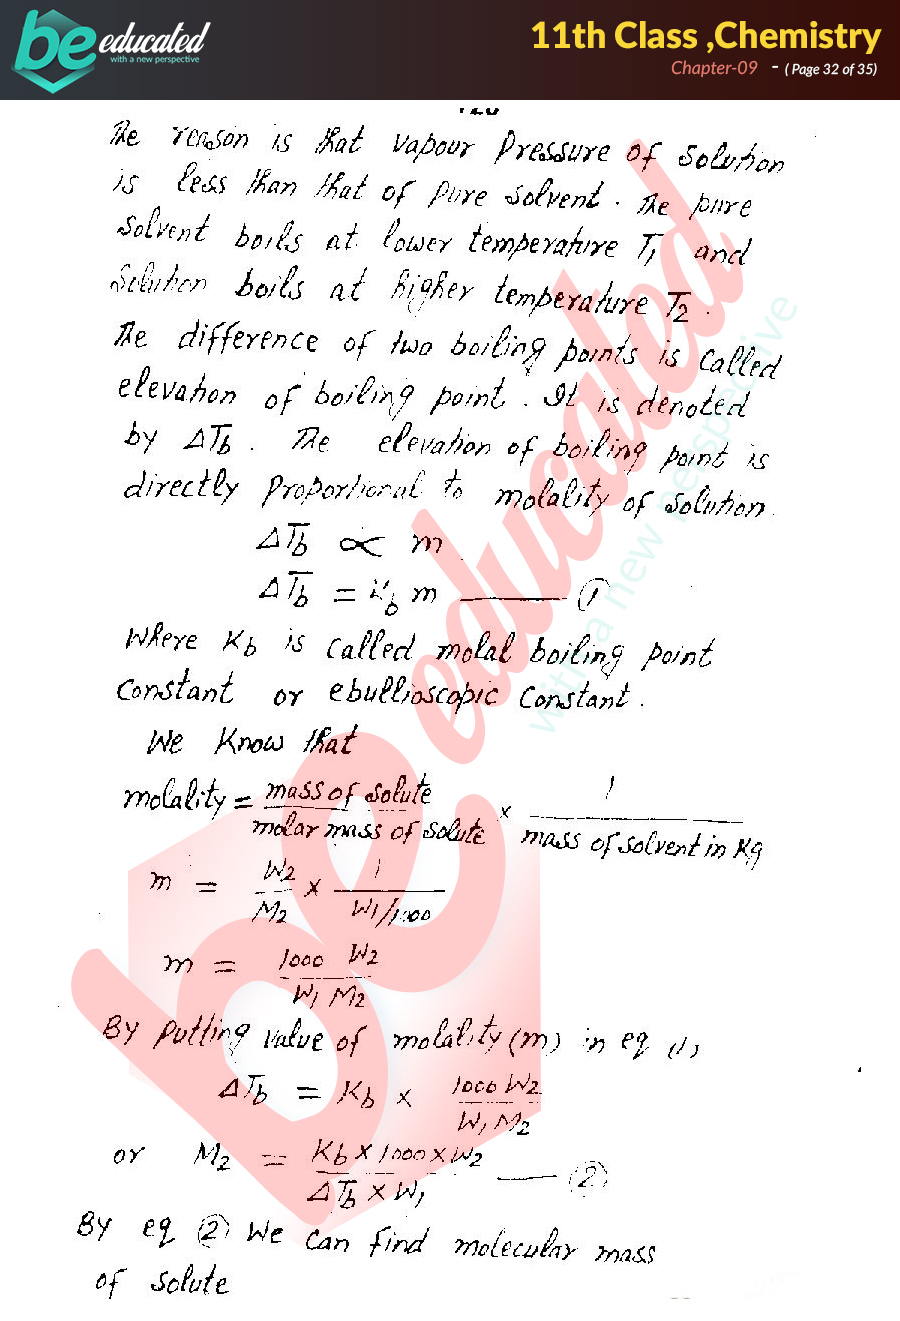 be educated
with a new perspective
11th Class ,Chemistry
Chapter-09 - ( Page 32 of 35)
The reason is that vapour pressure of solution
is less than that of pure solvent. The pure
solvent boils at lower temperature T₁ and
Solution boils at higher temperature T₂.
The difference of two boiling points is called
elevation of boiling point. It is denoted
by ΔTb. The elevation of boiling point is
directly proportional to molality of solution.
ΔTb ∝ m
ΔTb = Kb m —— ①
Where Kb is called molal boiling point
Constant or ebullioscopic constant.
We Know that
molality = mass of solute / molar mass of solute × 1 / mass of solvent in Kg
m = W₂ / M₂ × 1 / W₁/1000
m = 1000 W₂ / W₁ M₂
By putting value of molality (m) in eq (1)
ΔTb = Kb × 1000 W₂ / W₁ M₂
or M₂ = Kb × 1000 × W₂ / ΔTb × W₁ —— ②
By eq ② We can find molecular mass
of solute
be educated
with a new perspective